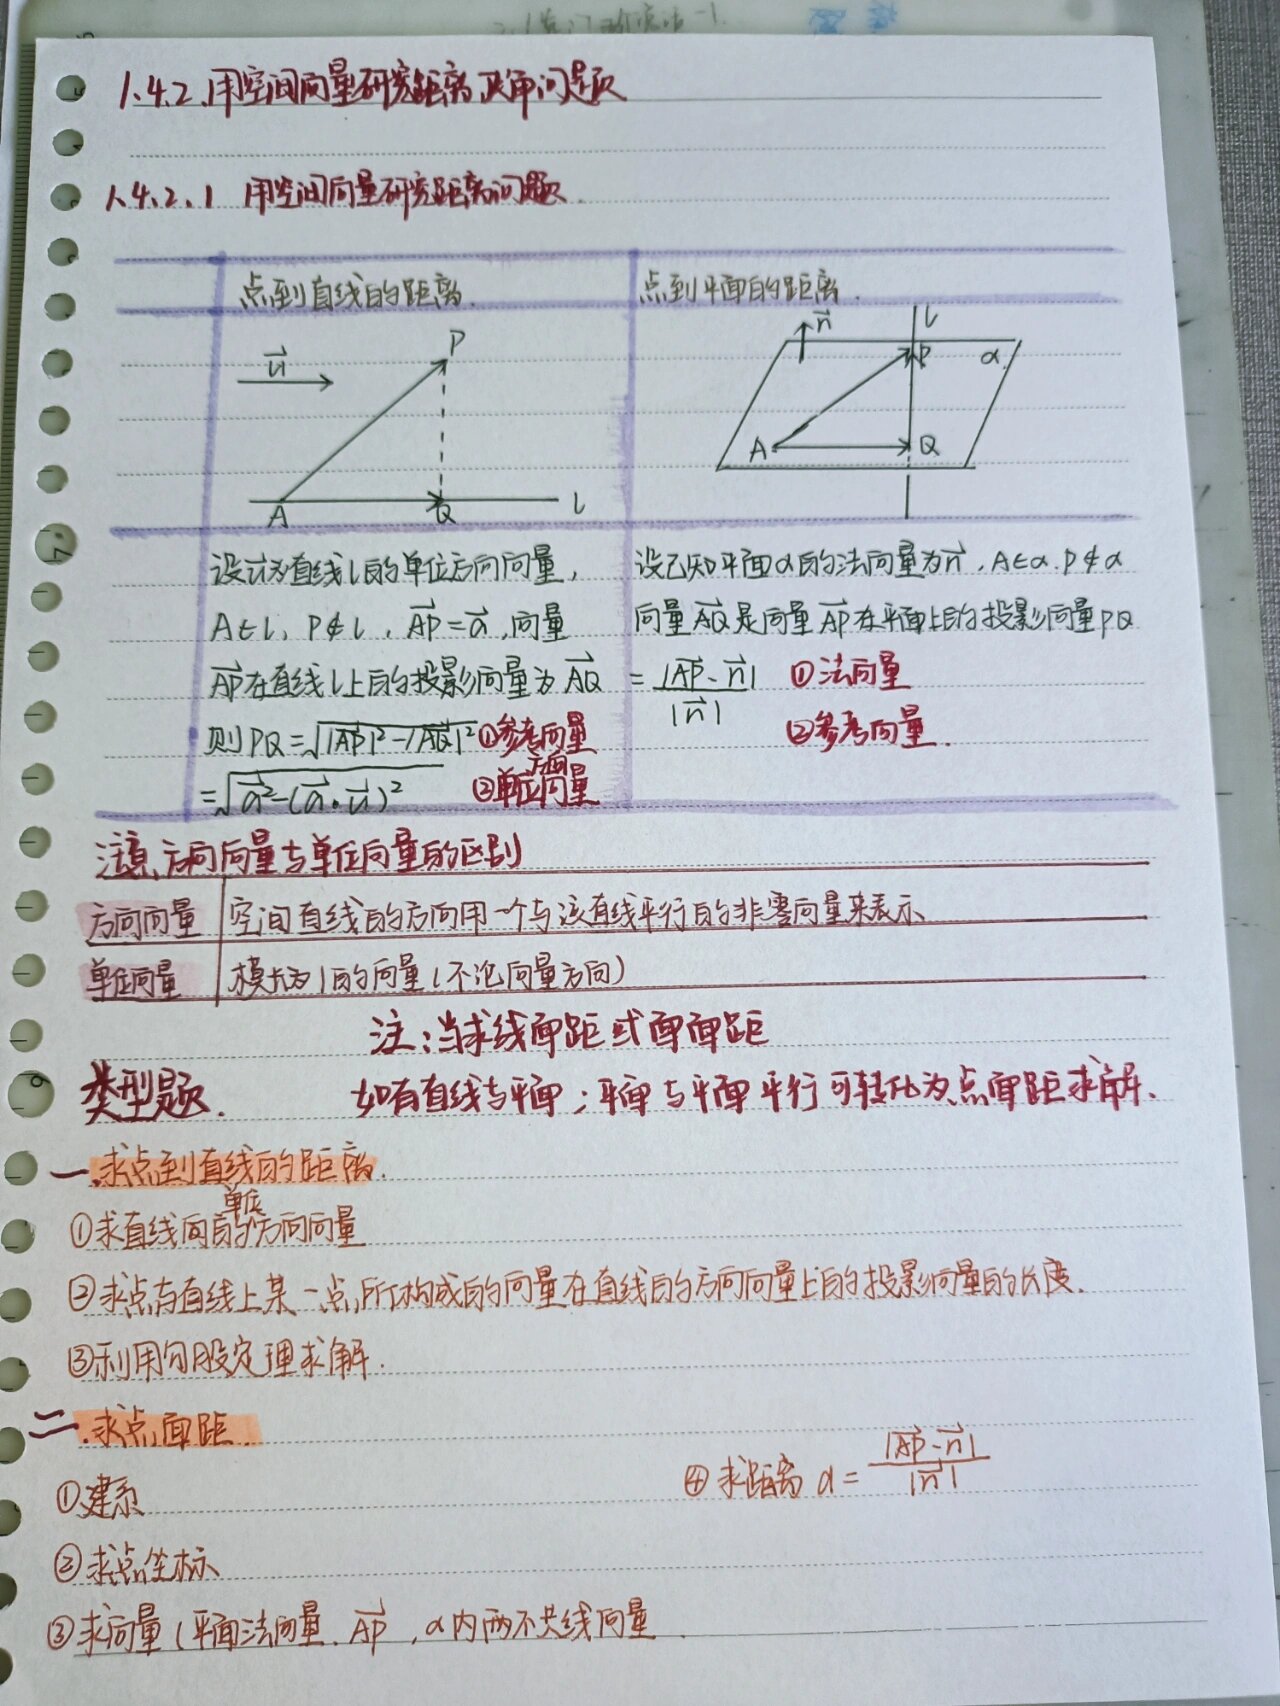 1.4.2.用空间向量研究距离及角问题
1.4.2.1 用空间向量研究距离问题.
点到直线的距离.
点到平面的距离.
u⃗
P
A
Q
l
n⃗
l
P
α
A
Q
设u⃗为直线l的单位方向向量,
A∈l, P∉l, AP⃗=a⃗,向量
AP⃗在直线l上的投影向量为AQ⃗
则PQ=√(|AP⃗|²-|AQ⃗|²) ①参考向量
=√(a⃗²-(a⃗·u⃗)²) ②单位方向向量
设已知平面α的法向量为n⃗,A∈α.P∉α
向量AQ⃗是向量AP⃗在平面上的投影向量PQ
=|AP⃗·n⃗|/|n⃗| ①法向量
②参考向量.
注意,方向向量与单位向量的区别
方向向量 空间直线的方向用一个与该直线平行的非零向量来表示
单位向量 模长为1的向量(不论向量方向)
注:当求线面距或面面距
类型题. 如有直线与平面;平面与平面平行可转化为点面距求解.
一.求点到直线的距离.
①求直线向的单位方向向量
②求点与直线上某一点所构成的向量在直线的方向向量上的投影向量的长度.
③利用勾股定理求解.
二.求点面距.
①建系
④求距离 d=|AP⃗·n⃗|/|n⃗|
②求点坐标
③求向量(平面法向量.AP⃗,α内两不共线向量